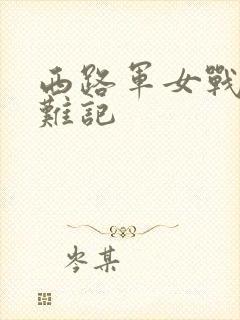 西路軍女戰
難記
岑某